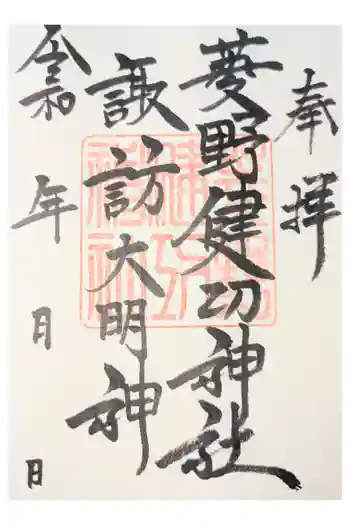 奉拝
菱野健功神社
諏訪大明神
令和 年 月 日